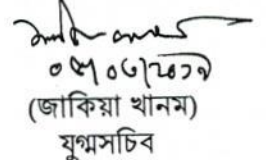 ০৫/০৬/২০১৭
(জাকিয়া খানম)
যুগ্মসচিব